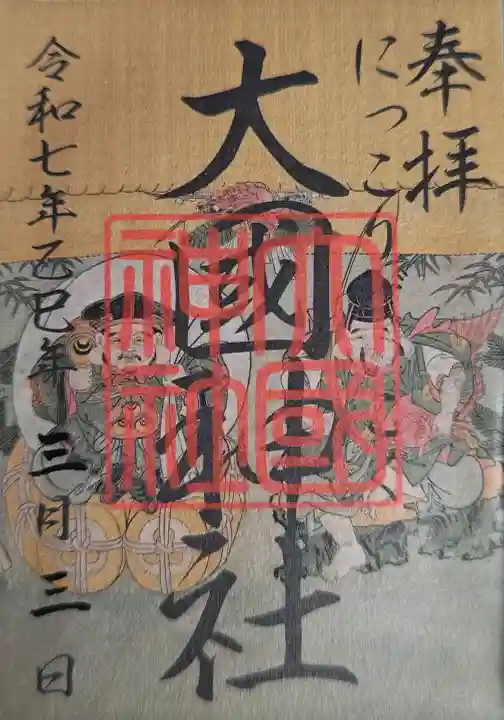 奉拝
にっこり
大國神社
令和七年乙巳年三月三日
大國
神社